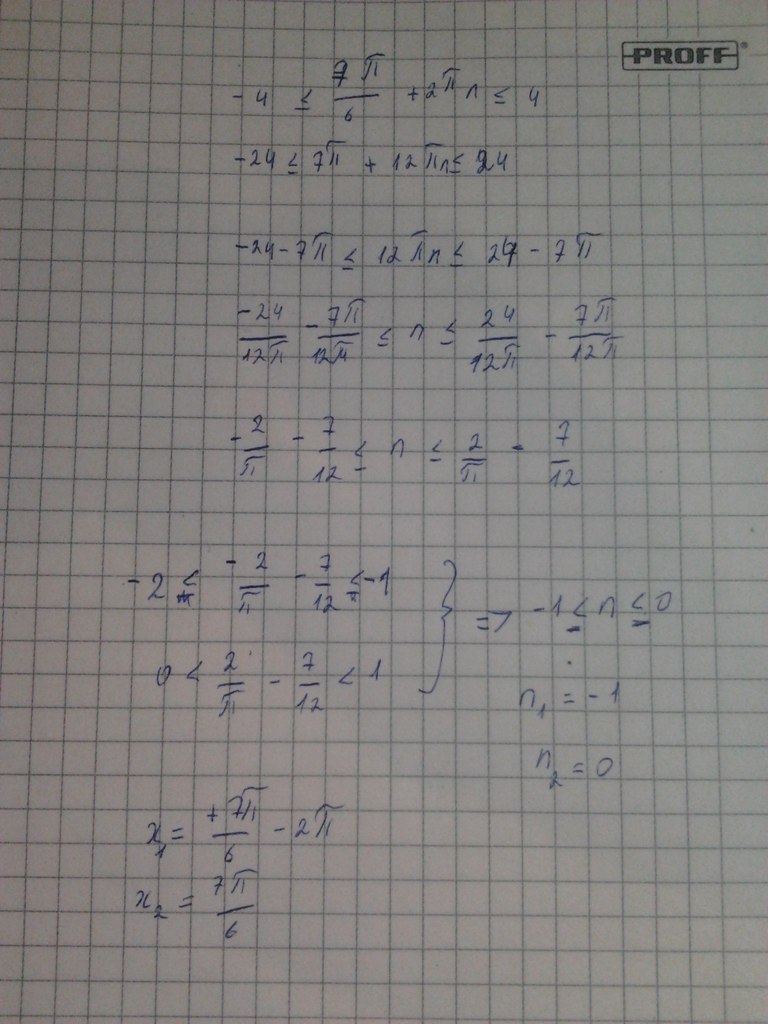 PROFF®
-4 ≤ 7π/6 + 2πn ≤ 4
-24 ≤ 7π + 12πn ≤ 24
-24 - 7π ≤ 12πn ≤ 24 - 7π
-24/12π - 7π/12π ≤ n ≤ 24/12π - 7π/12π
-2/π - 7/12 ≤ n ≤ 2/π - 7/12
-2 ≤ -2/π - 7/12 ≤ -1
0 < 2/π - 7/12 < 1
} => -1 ≤ n ≤ 0
n₁ = -1
n₂ = 0
x₁ = +7π/6 - 2π
x₂ = 7π/6